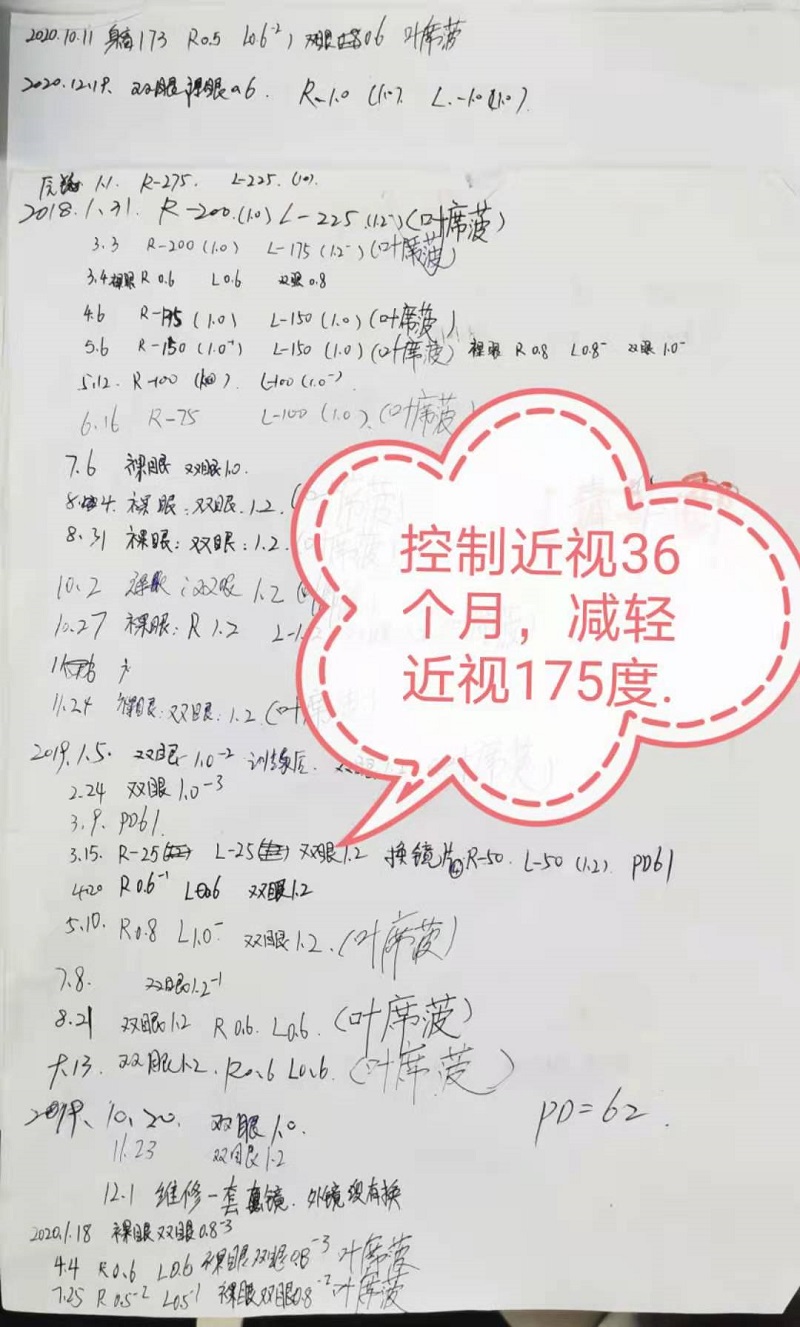 2020.10.11 身高173 R0.5 L0.6⁻² 双眼 0.6 叶席菠
2020.12.19. 双眼裸眼0.6. R-1.0 (1.0). L.-1.0 (1.0).
1.1. R-275. L-225. (1.0).
2018.1.31. R-200.(1.0) L-225.(1.2⁻) (叶席菠)
3.3 R-200 (1.0) L-175 (1.2⁻) (叶席菠)
3.4 裸眼 R 0.6 L0.6 双眼 0.8
4.6 R-175 (1.0) L-150 (1.0) (叶席菠)
5.6 R-150 (1.0⁻¹) L-150 (1.0) (叶席菠) 裸眼 R 0.8 L0.8⁻ 双眼 1.0⁻
5.12. R-100 L-100 (1.0⁻).
6.16 R-75 L-100 (1.0). (叶席菠)
7.6 裸眼 双眼1.0.
8. 4. 裸眼:双眼.1.2.
8.31 裸眼:双眼:1.2.
10.2 裸眼:双眼 1.2
10.27 裸眼:R 1.2
11.24 裸眼:双眼:1.2 (叶席
控制近视36
个月，减轻
近视175度.
2019.1.5. 双眼 1.0⁻² 训练后.
2.24 双眼 1.0⁻³
3.9. PD61.
3.15. R-25 L-25 双眼1.2 换镜片 R-50. L-50 (1.2) PD61
4.20 R0.6⁻¹ L0.6 双眼1.2
5.10. R0.8 L1.0⁻ 双眼1.2.(叶席菠)
7.8. 双眼1.2⁻¹
8.21 双眼1.2 R0.6. L0.6. (叶席菠)
13. 双眼1.2. R0.6 L0.6. (叶席菠)
2019.10.20. 双眼1.0. PD=62.
11.23 双眼1.2
12.1 维修一套 镜.外镜没有换
2020.1.18 裸眼双眼0.8⁻³
4.4 R0.6 L0.6 裸眼双眼0.8⁻³ 叶席菠
7.25 R0.5⁻² L0.5⁻¹ 裸眼双眼0.8⁻² 叶席菠